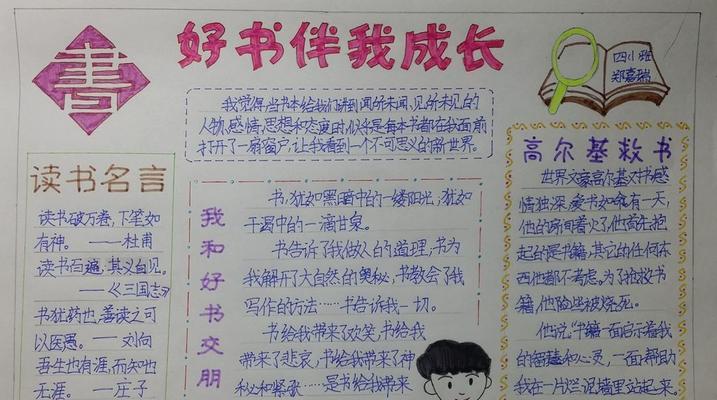 書
好书伴我成长
四小班
郑嘉瑞
我觉得,当书本给我们讲到闻所未闻,见所未见的
人物,感情,思想和态度时,似乎是每本书都在我面前
打开了一扇窗户,让我看到一个不可思义的新世界。
读书名言
读书破万卷,下笔如
有神。 ——杜甫
读书百遍,其义自见。
——《三国志》
书犹药也,善读之可
以医愚。——刘向
吾生也有涯,而知也
无涯。——庄子
我和好书交朋
书,犹如黑暗中的一缕阳光,犹如
干渴中的一滴甘泉。
书告诉了我做人的道理,书为
我解开了大自然的奥秘,书教会了我
写作的方法……书告诉我一切。
书给我带来了欢笑,书给我
带来了悲哀,书给我带来了神
秘和紧张……是书给我带来
高尔基救书
世界文豪高尔基对书感
情独深,爱书如命,有一天,
他的房间着火了,他首先抱
起的是书籍,其它的任何东
西他都不考虑。为了抢救书
籍,他险些被烧死。
他说:书籍一面启示着我
的智慧和心灵,一面帮助
我在一片烂泥塘里站起来。